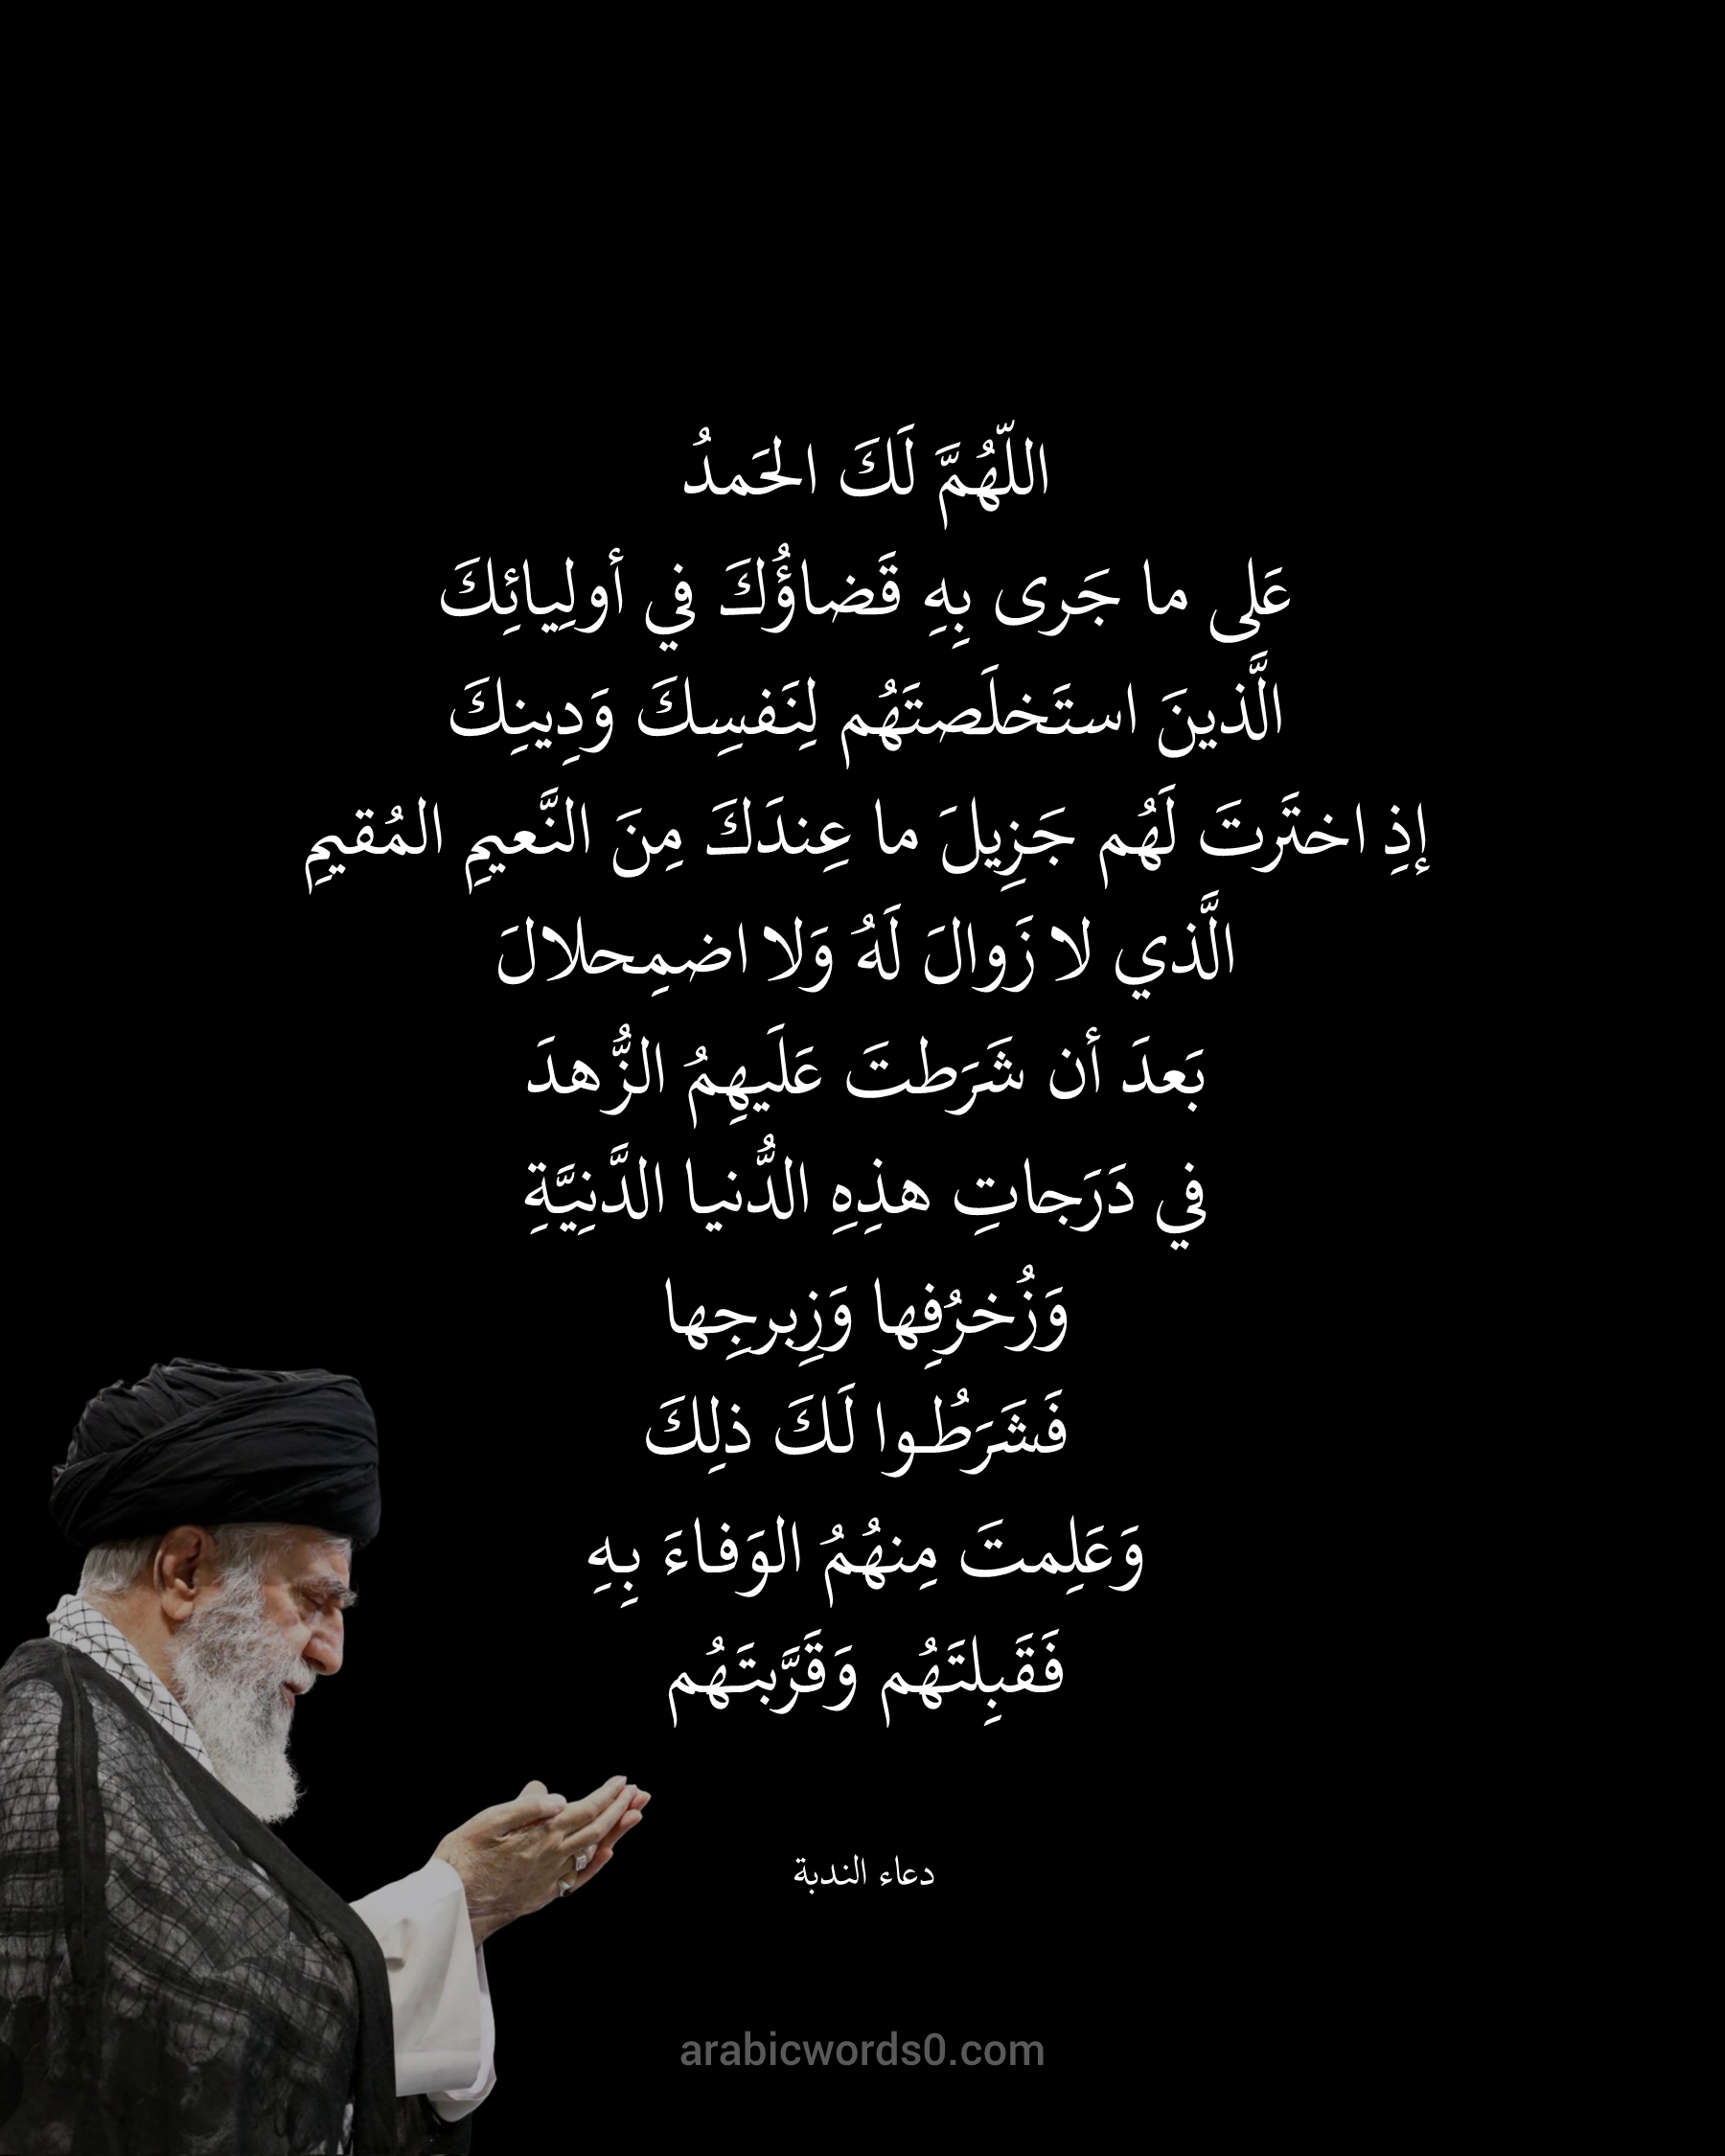 اللّهُمَّ لَكَ الحَمدُ
عَلى ما جَرى بِهِ قَضاؤُكَ في أولِيائِكَ
الَّذينَ استَخلَصتَهُم لِنَفسِكَ وَدِينِكَ
إذِ اختَرتَ لَهُم جَزِيلَ ما عِندَكَ مِنَ النَّعيمِ المُقيمِ
الَّذي لا زَوالَ لَهُ وَلا اضمِحلالَ
بَعدَ أن شَرَطتَ عَلَيهِمُ الزُّهدَ
في دَرَجاتِ هذِهِ الدُّنيا الدَّنِيَّةِ
وَزُخرُفِها وَزِبرجِها
فَشَرَطُوا لَكَ ذلِكَ
وَعَلِمتَ مِنهُمُ الوَفاءَ بِهِ
فَقَبِلتَهُم وَقَرَّبتَهُم
دعاء الندبة
arabicwords0.com